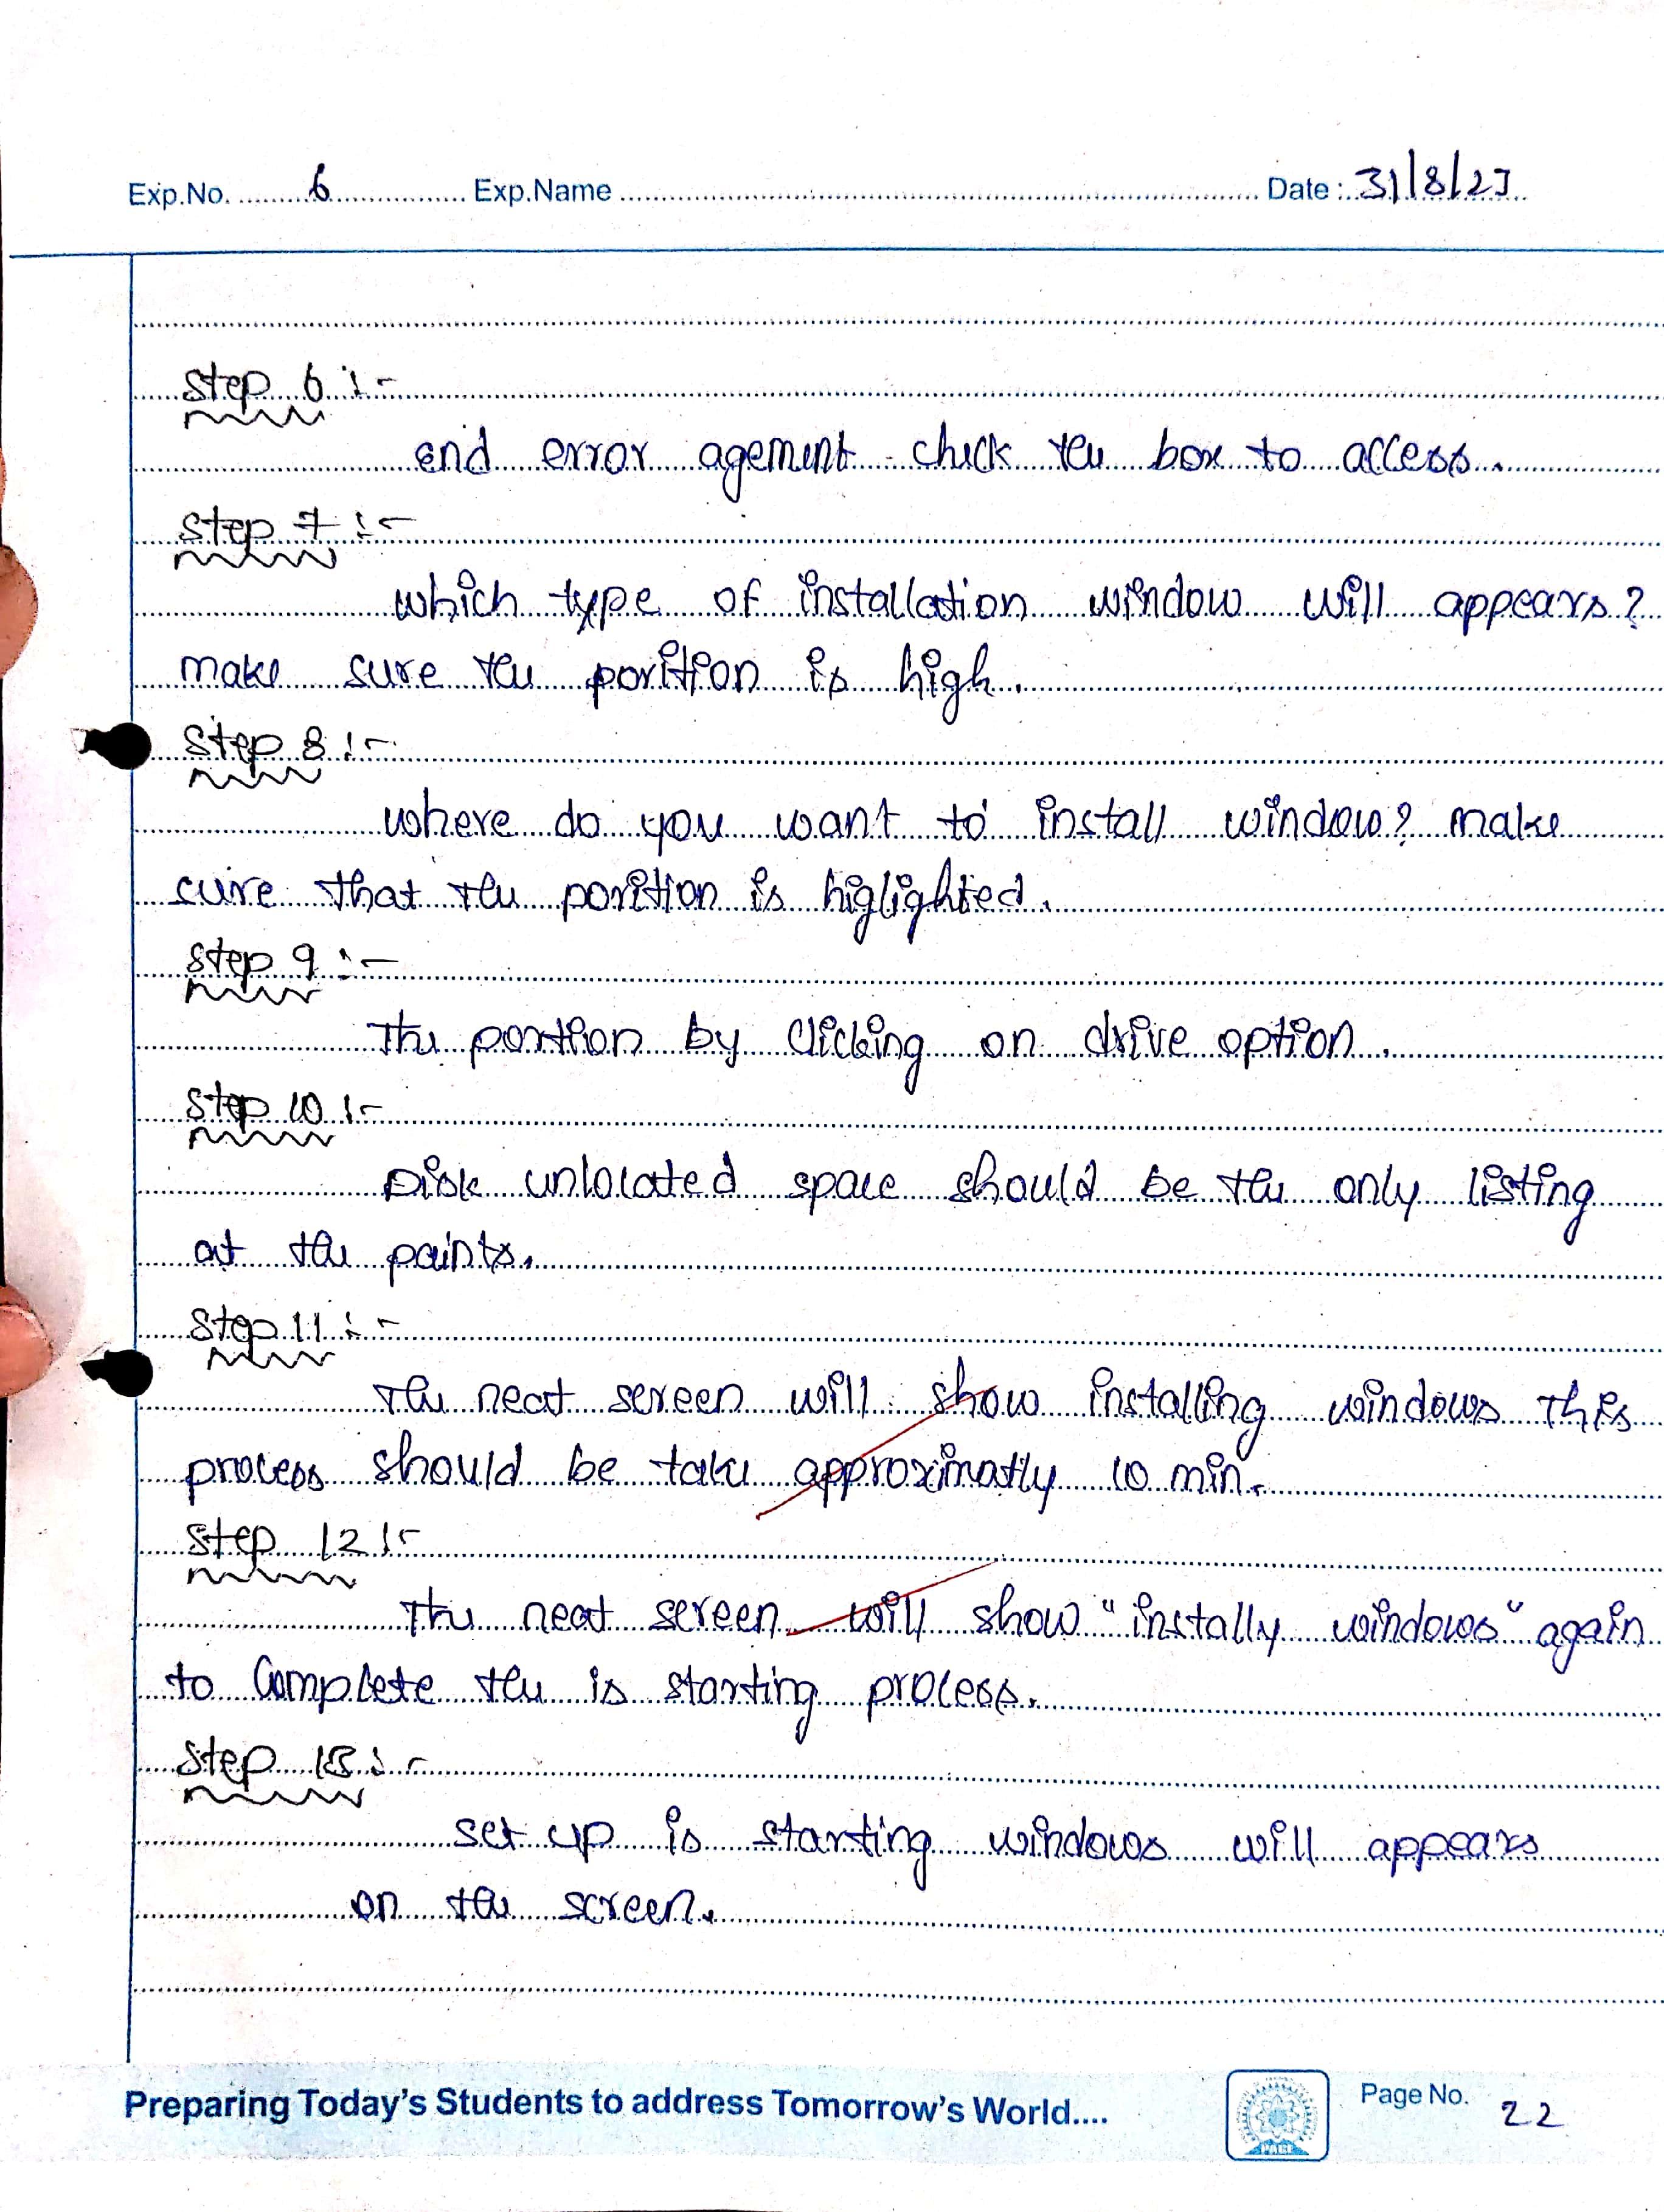 Exp.No. 6 Exp.Name Date : 31/8/23
step 6 :-
end error agement check the box to access.
step 7 :-
which type of installation window will appears?
make sure the porition is high.
step 8 :-
where do you want to install window? make
sure that the porition is higlighted.
step 9 :-
The portion by clicking on drive option.
step 10 :-
Disk unlocated space should be the only listing
at the paints.
step 11 :-
The neat screen will show installing windows This
process should be take approximatly 10 min.
step 12 :-
The neat screen will show "instally windows" again
to complete the is starting process.
step 13 :-
set up is starting windows will appears
on the screen.
Preparing Today's Students to address Tomorrow's World....
PACE
Page No. 22